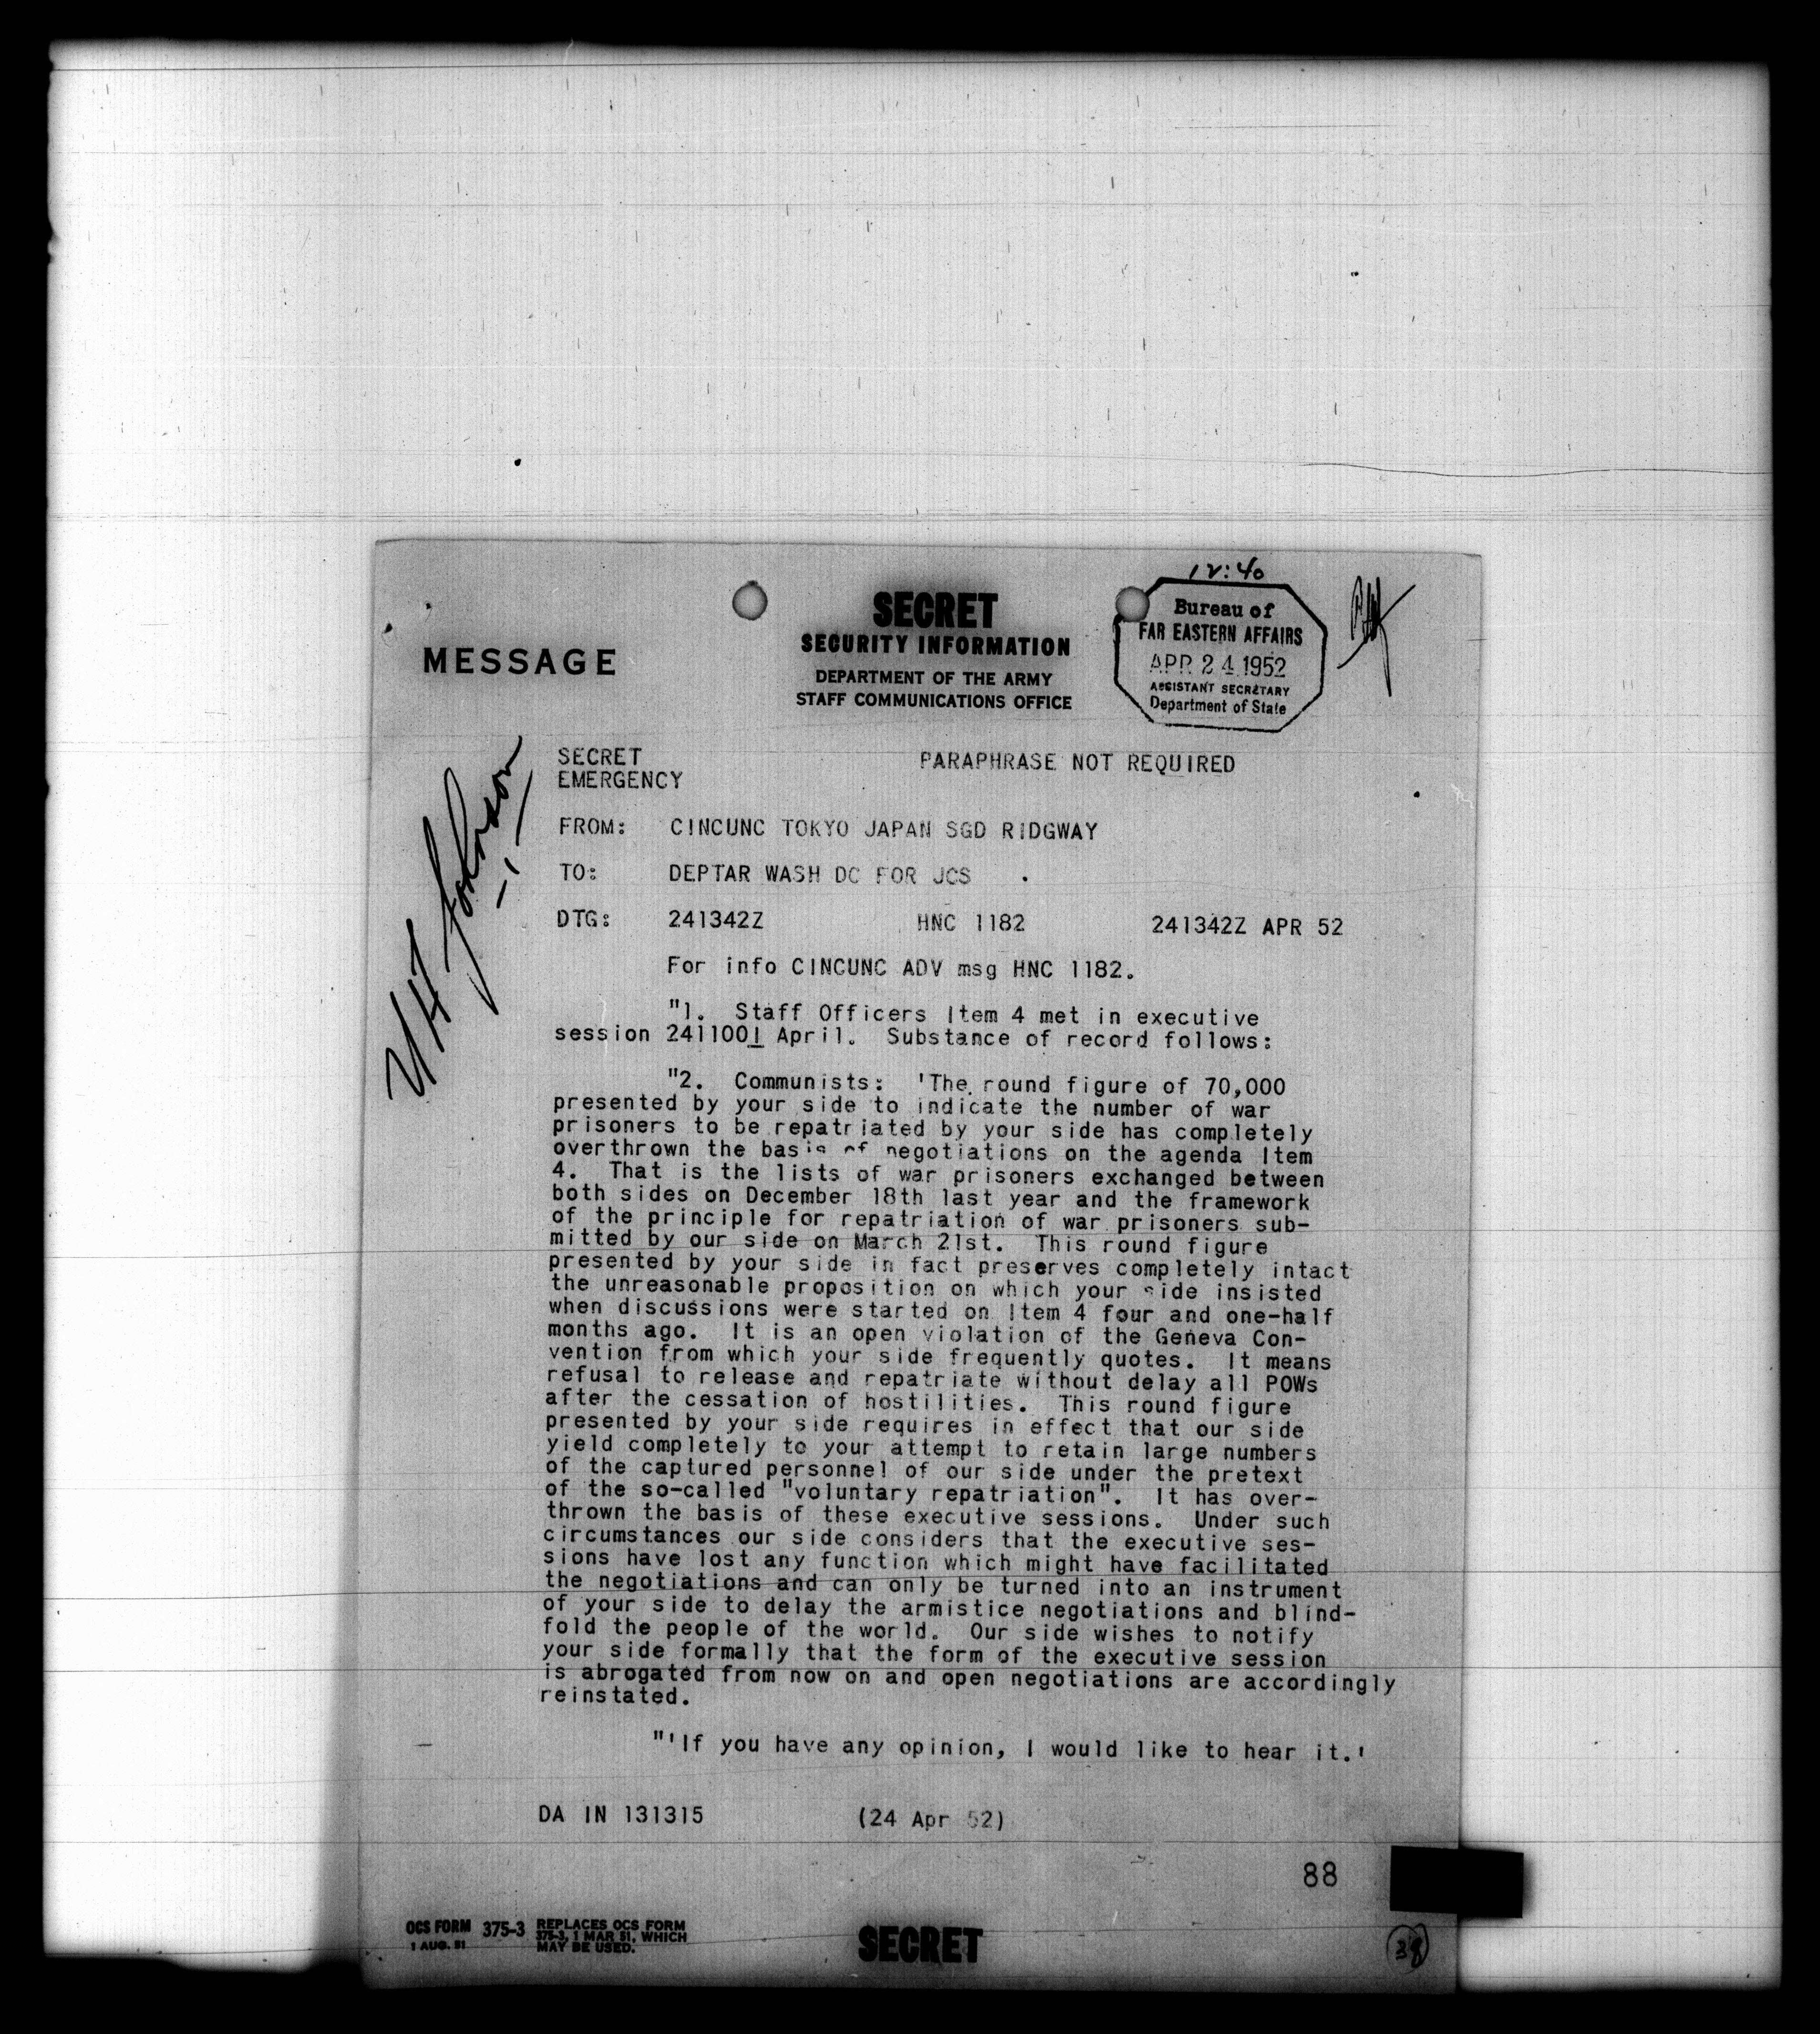 12:40
SECRET
SECURITY INFORMATION
DEPARTMENT OF THE ARMY
STAFF COMMUNICATIONS OFFICE
MESSAGE
Bureau of
FAR EASTERN AFFAIRS
APR 24 1952
ASSISTANT SECRETARY
Department of State
U H Johnson
SECRET PARAPHRASE NOT REQUIRED
EMERGENCY
FROM: CINCUNC TOKYO JAPAN SGD RIDGWAY
TO: DEPTAR WASH DC FOR JCS
DTG: 241342Z HNC 1182 241342Z APR 52
For info CINCUNC ADV msg HNC 1182.
"1. Staff Officers Item 4 met in executive
session 241100I April. Substance of record follows:
"2. Communists: 'The round figure of 70,000
presented by your side to indicate the number of war
prisoners to be repatriated by your side has completely
overthrown the basis of negotiations on the agenda Item
4. That is the lists of war prisoners exchanged between
both sides on December 18th last year and the framework
of the principle for repatriation of war prisoners sub-
mitted by our side on March 21st. This round figure
presented by your side in fact preserves completely intact
the unreasonable proposition on which your side insisted
when discussions were started on Item 4 four and one-half
months ago. It is an open violation of the Geneva Con-
vention from which your side frequently quotes. It means
refusal to release and repatriate without delay all POWs
after the cessation of hostilities. This round figure
presented by your side requires in effect that our side
yield completely to your attempt to retain large numbers
of the captured personnel of our side under the pretext
of the so-called "voluntary repatriation". It has over-
thrown the basis of these executive sessions. Under such
circumstances our side considers that the executive ses-
sions have lost any function which might have facilitated
the negotiations and can only be turned into an instrument
of your side to delay the armistice negotiations and blind-
fold the people of the world. Our side wishes to notify
your side formally that the form of the executive session
is abrogated from now on and open negotiations are accordingly
reinstated.
"'If you have any opinion, I would like to hear it.'
DA IN 131315 (24 Apr 52)
88
OCS FORM 375-3 REPLACES OCS FORM
1 AUG. 51 375-3, 1 MAR 51, WHICH
MAY BE USED.
SECRET
38